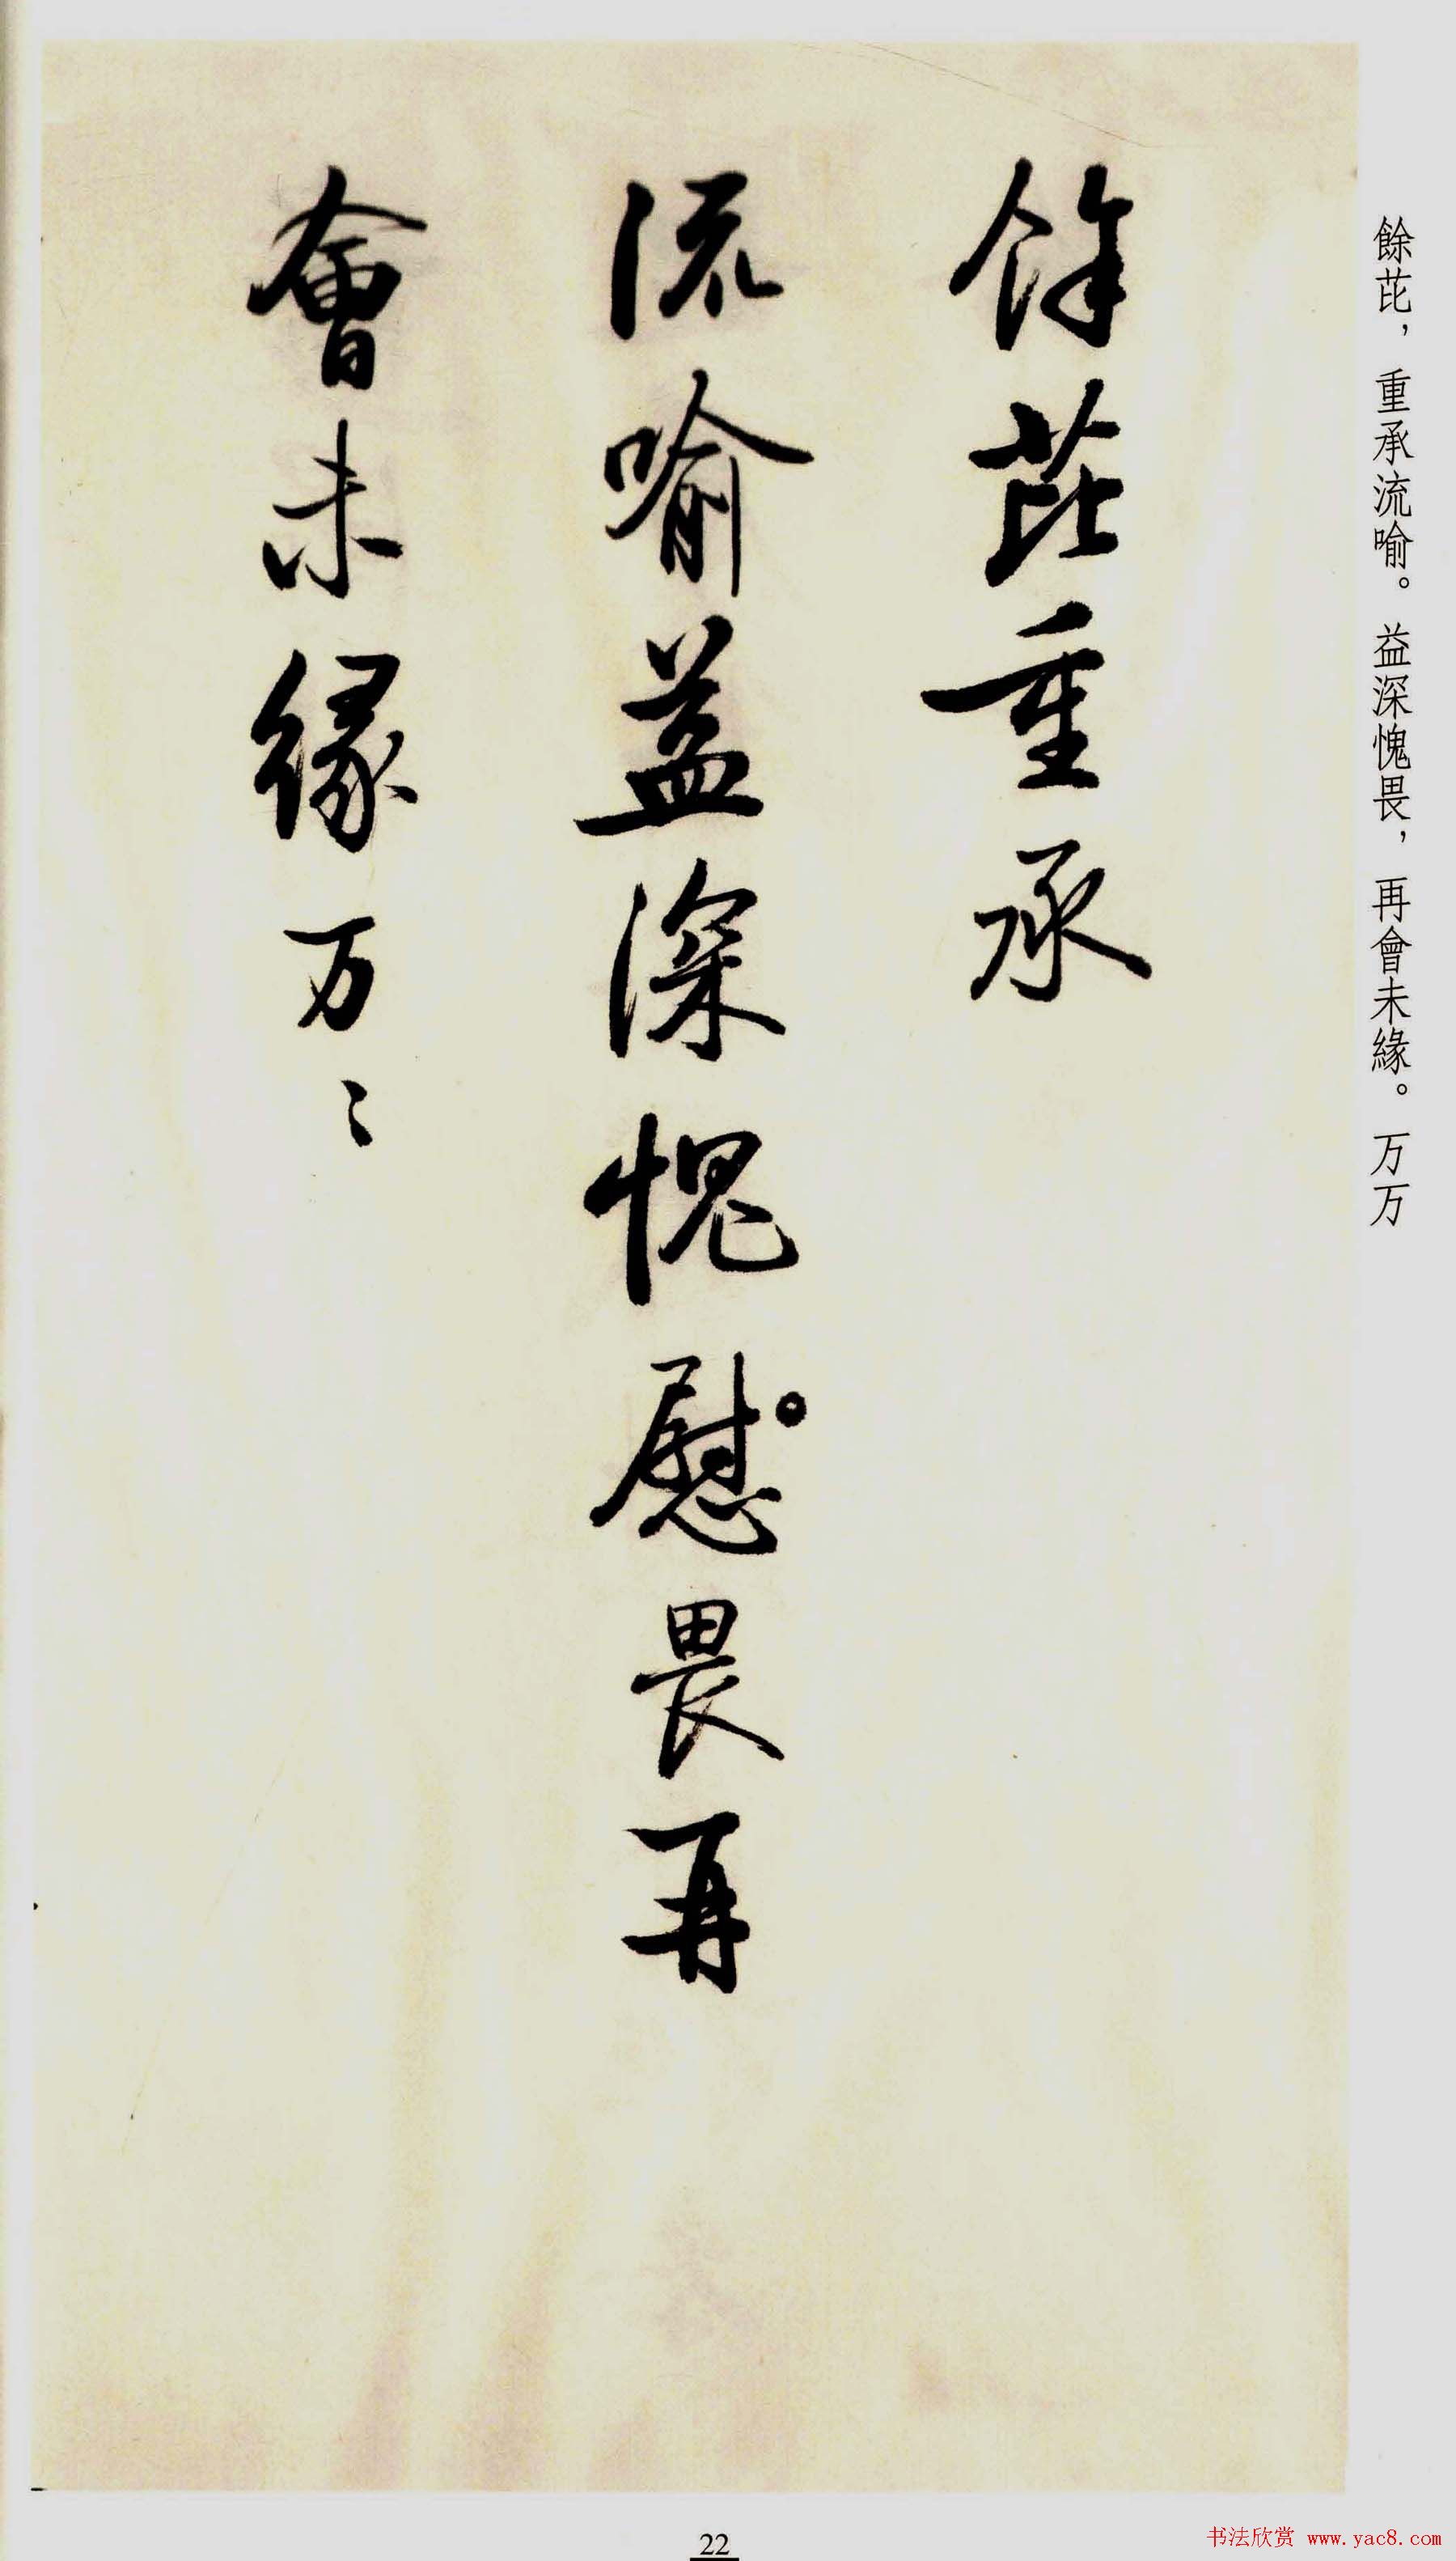 餘芘，重承流喻。益深愧畏，再會未緣。万万
餘芘重承
流喻益深愧慰畏再
會未緣万〻
22
书法欣赏 www.yac8.com